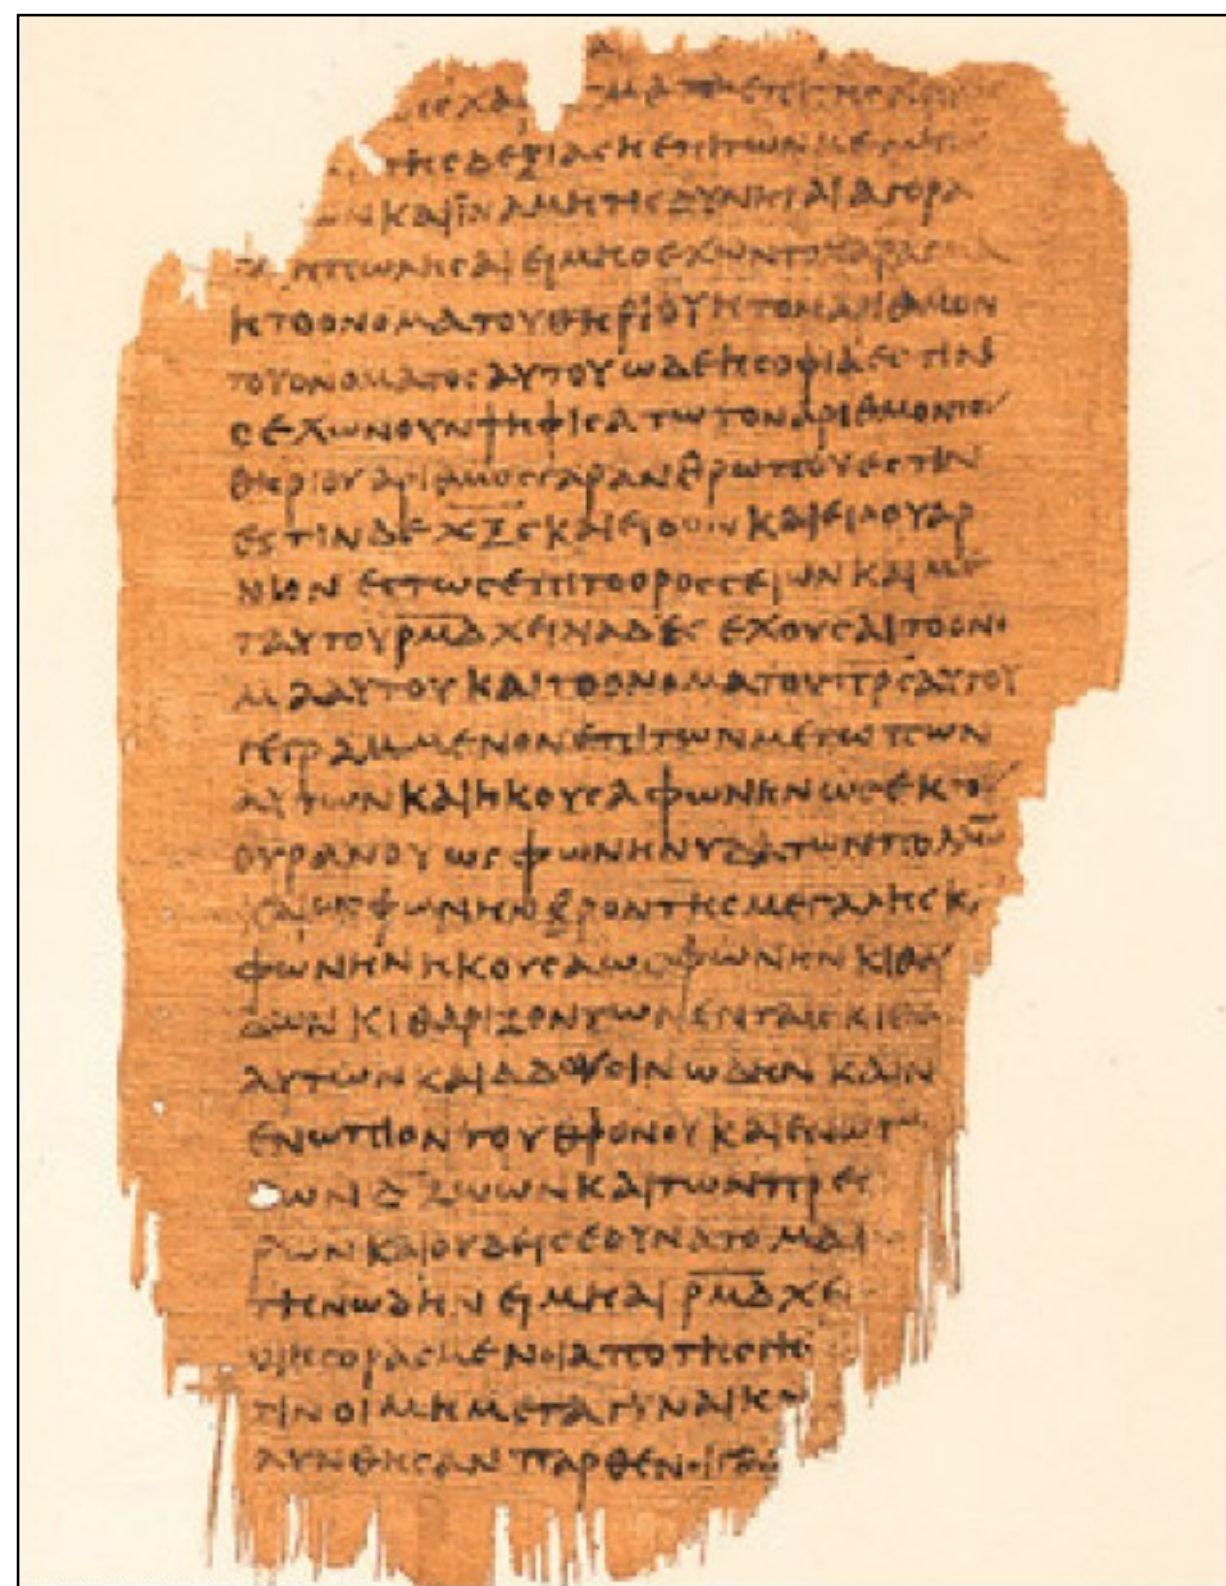 ΤΗϹΔΕΞΙΑϹΗΕΠΙΤΩΝΜΕΤΩΠ
ΩΝΚΑΙΪΝΑΜΗΤΙϹΔΥΝΗΤΑΙΑΓΟΡΑ
ΗΠΩΛΗϹΑΙΕΙΜΗΟΕΧΩΝΤΟΧΑΡΑΓΜΑ
ΗΤΟΟΝΟΜΑΤΟΥΘΗΡΙΟΥΗΤΟΝΑΡΙΘΜΟΝ
ΤΟΥΟΝΟΜΑΤΟϹΑΥΤΟΥΩΔΕΗϹΟΦΙΑΕϹΤΙΝ
ΕΧΩΝΟΥΝΨΗΦΙϹΑΤΩΤΟΝΑΡΙΘΜΟΝΤΟΥ
ΘΗΡΙΟΥΑΡΙΘΜΟϹΓΑΡΑΝΘΡΩΠΟΥΕϹΤΙΝ
ΕϹΤΙΝΔΕΧ̅Ξ̅Ϛ̅ΚΑΙΕΙΔΟΝΚΑΙΕΙΔΟΥΑΡ
ΝΙΟΝΕϹΤΩϹΕΠΙΤΟΟΡΟϹϹΕΙΩΝΚΑΙΜΕ
ΤΑΥΤΟΥΡ̅Μ̅Δ̅ΧΕΙΛΙΑΔΕϹΕΧΟΥϹΑΙΤΟΟΝΟ
ΜΑΑΥΤΟΥΚΑΙΤΟΟΝΟΜΑΤΟΥΠ̅Ρ̅Ϲ̅ΑΥΤΟΥ
ΓΕΓΡΑΜΜΕΝΟΝΕΠΙΤΩΝΜΕΤΩΠΩΝ
ΑΥΤΩΝΚΑΙΗΚΟΥϹΑΦΩΝΗΝΩϹΕΚΤΟΥ
ΟΥΡΑΝΟΥΩϹΦΩΝΗΝΥΔΑΤΩΝΠΟΛΛΩ̅
ΚΑΙΩϹΦΩΝΗΝΒΡΟΝΤΗϹΜΕΓΑΛΗϹΚ
ΦΩΝΗΝΗΚΟΥϹΑΩϹΦΩΝΗΝΚΙΘΑ
ΔΩΝΚΙΘΑΡΙΖΟΝΤΩΝΕΝΤΑΙϹΚΙΘΑ
ΑΥΤΩΝΚΑΙΑΔΟΥϹΙΝΩΔΗΝΚΑΙΝ
ΕΝΩΠΙΟΝΤΟΥΘΡΟΝΟΥΚΑΙΕΝΩΠΙ
ΩΝΔ̅ΖΩΩΝΚΑΙΤΩΝΠΡΕϹ
ΡΩΝΚΑΙΟΥΔΕΙϹΕΔΥΝΑΤΟΜΑ
ΤΗΝΩΔΗΝΕΙΜΗΑΙΡ̅Μ̅Δ̅ΧΕΙ
ΟΙΗΓΟΡΑϹΜΕΝΟΙΑΠΟΤΗϹΓΗ
ΤΙΝΟΙΜΗΜΕΤΑΓΥΝΑΙΚΩ
ΛΥΝΘΗϹΑΝΠΑΡΘΕΝΟΙΓΑΡ